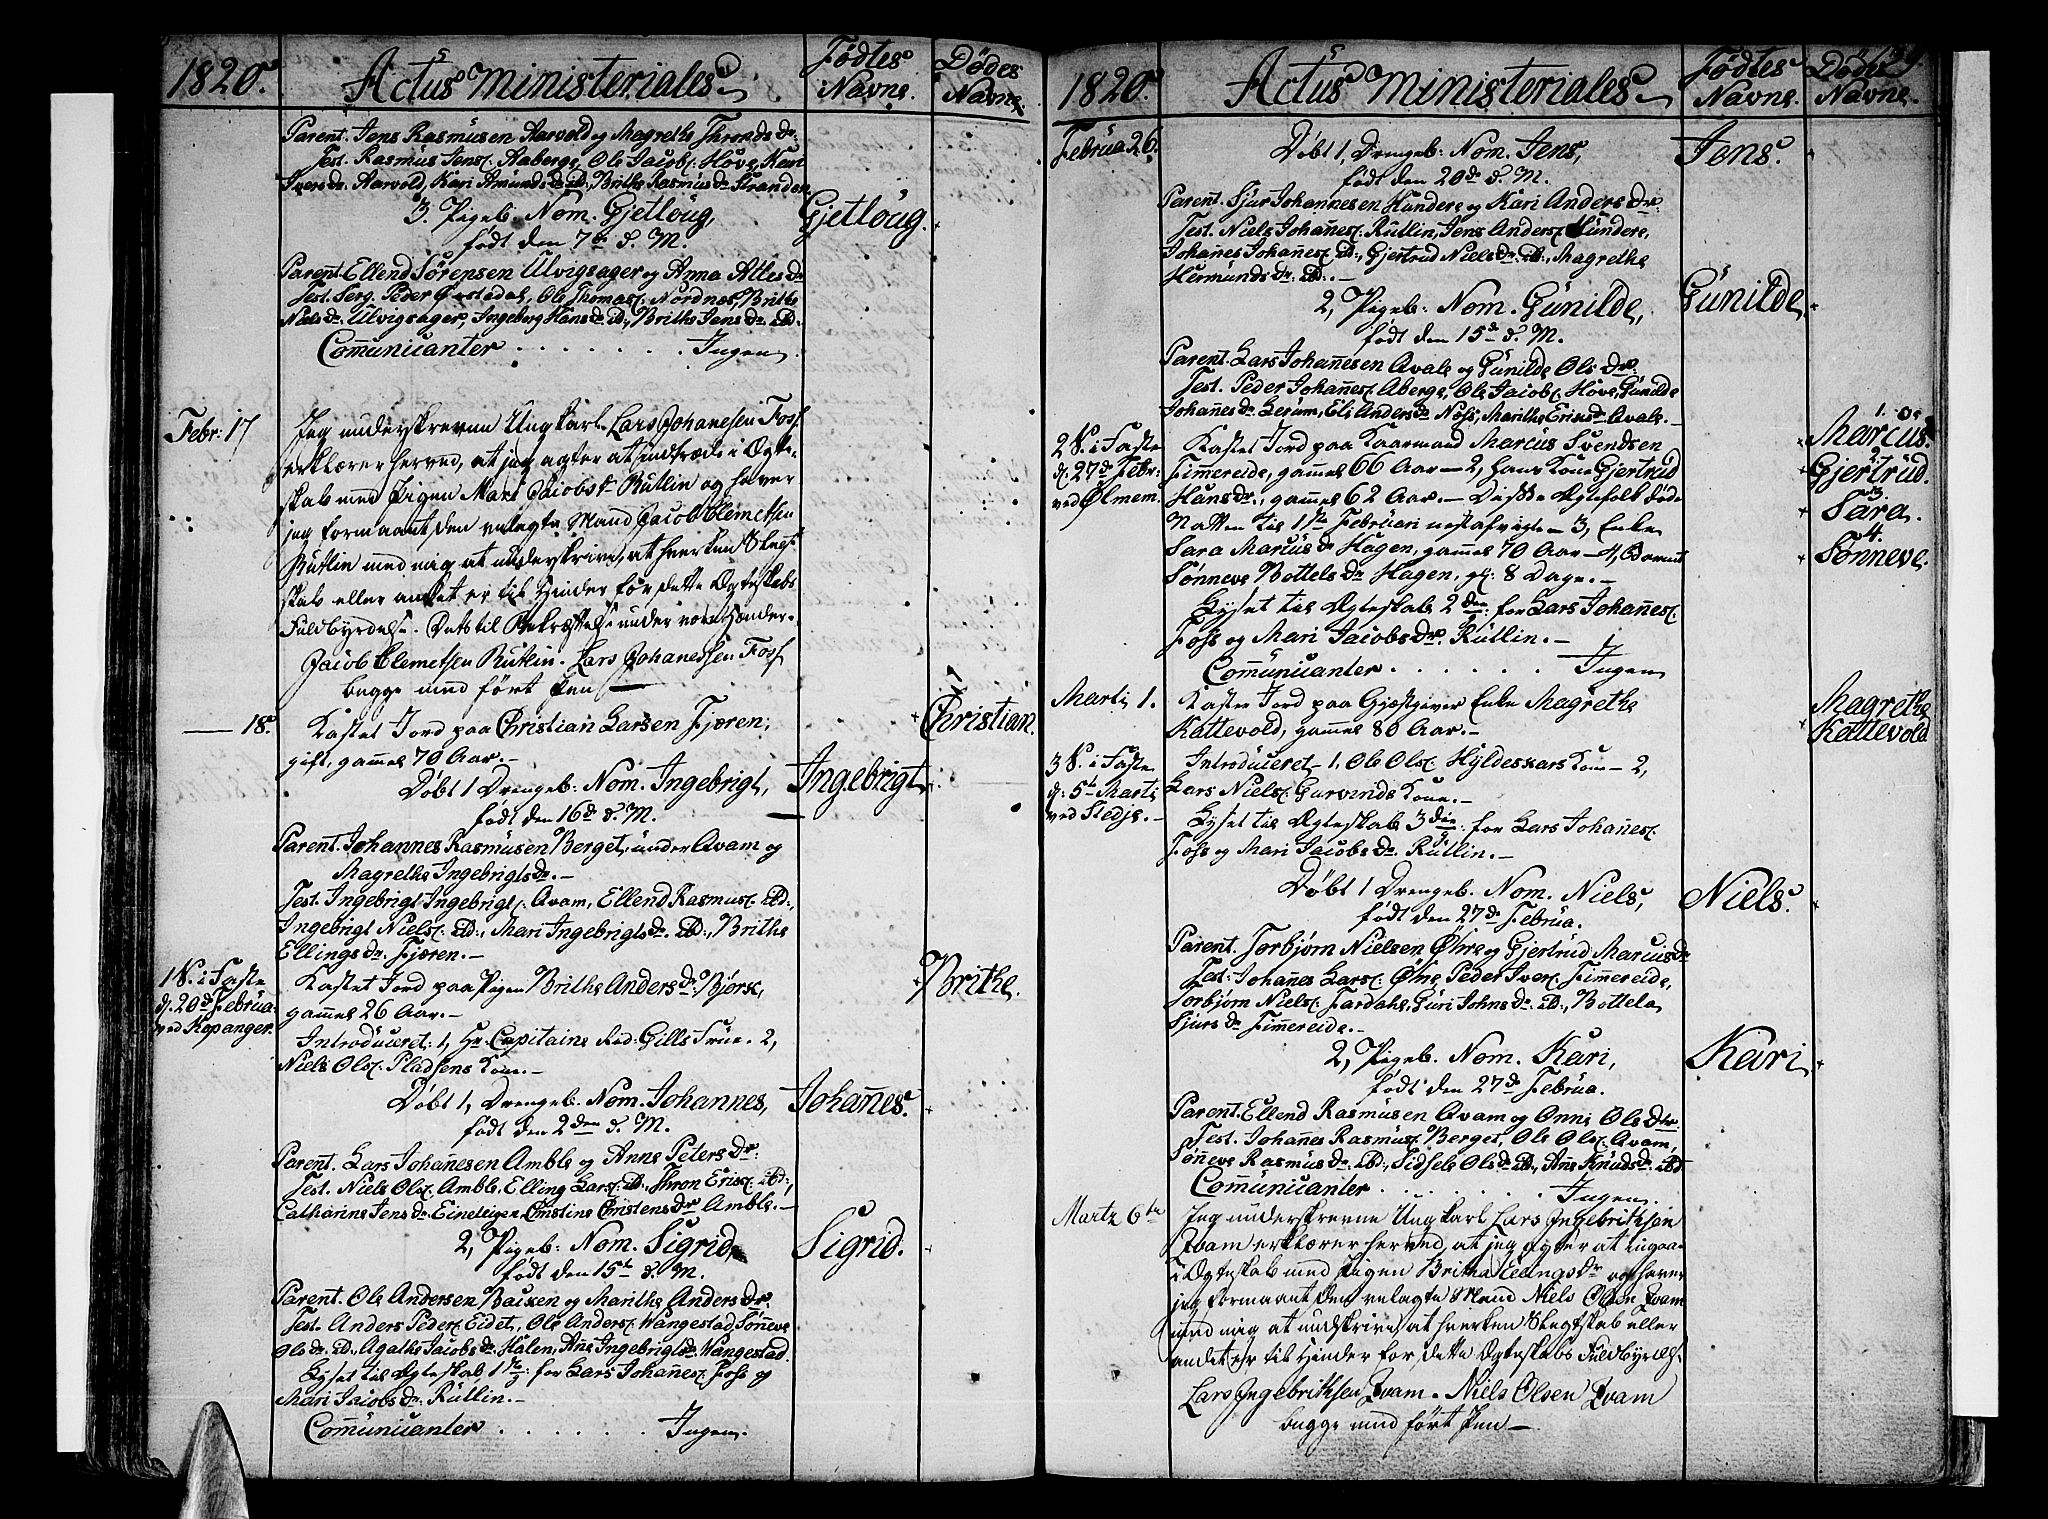 1820. Actus Ministeriales Fødtes Navne. Dødes Navne.
Parent. Jens Rasmusen Aarvold og Magrethe Thronds Dr.
Test. Rasmus Jens. Aaberge, Ole Jacobs. Hove, Kari
Ivers Dr. Aarvold, Kari Amunds Dr. ibd:, Brithe Rasmus Dr. Stranden
3. Pigeb. Nom. Gjetloug, Gjetloug.
født den 7de d. M.
Parent. Ellend Sørensen Ulvigsager og Anna Atles Dr
Test. Serg. Peder Ørstedal, Ole Thomas. Nordnes, Brithe
Niels Dr. Ulvigsager, Ingeberg Hans Dr. ibd:, Brithe Jens Dr. ibd.
Communicanter . . . . . . Ingen.
Febr: 17 Jeg underskrevne Ungkarl Lars Johanesen Foss
erklærer herved, at jeg agter at indtræde i Ægte-
skab med Pigen Mari Jacobs Dr Rutlin og haver
jeg formaaet den velagte Mand Jacob Clemetsen
Rutlin med mig at underskrive, at hverken Slegt-
skab eller andet er til Hinder for dette Ægteskabs
Fuldbyrdelse. Dets til Bekræftelse under vore Hænder.
Jacob Clemetsen Rutlin. Lars Johanessen Foss
begge med ført Pen
— 18. Kastet Jord paa Christian Larsen Fjæren, 1. Christian.
gift, gammel 70 Aar.-
Døbt 1 Drengeb: Nom. Ingebrigt, Ingebrigt
født den 16de d. M.
Parent. Johannes Rasmusen Berget, under Avam og
Magrethe Ingebrigts Dr.-
Test. Ingebrigt Ingebrigts. Avam, Ellend Rasmus. ibd:,
Ingebrigt Niels. ibd:, Mari Ingebrigts Dr. ibd:, Brithe
Ellings Dr. Fjæren.-
1 S. i Faste
d. 20de Februa:
ved Kopanger.
Kastet Jord paa Pigen Brithe Anders Dr. Bjørk, Brithe.
gammel 26 Aar.-
Introduceret: 1, Hr. Capitaine Fred: Gills Frue. 2,
Niels Ols. Pladsens Kone.-
Døbt 1, Drengeb: Nom. Johannes, Johanes.
født den 2den d. M.
Parent. Lars Johanesen Amble og Anne Peters Dr.
Test. Niels Ols. Amble, Elling Lars. ibd., Thron Erics. ibd:,
Catharine Jens Dr. Eineteigen, Christine Christens Dr Amble.-
2, Pigeb: Nom. Sigrid, Sigrid.
født den 15de d. M.
Parent. Ole Andersen Backen og Marithe Anders Dr.
Test. Anders Peders. Eidet, Ole Anders. Wangestad, Sønneve
Ols Dr. ibd., Agathe Jacobs Dr. Halen, Ane Ingebrigts Dr. Wangestad.
Lyset til Ægteskab 1ste: for Lars Johanes. Foss og
Mari Jacobs Dr. Rutlin.-
Communicanter . . . . . . Ingen.
1820. Actus Ministeriales Fødtes Navne. Dødes Navne.
Februa 26. Døbt 1, Drengeb: Nom. Jens, Jens.
født den 20de d. M.
Parent. Sjur Johannesen Hundere og Kari Anders Dr.
Test. Niels Johanes. Rutlin, Jens Anders. Hundere,
Johanes Johanes. ibd:, Gjertrud Niels Dr. ibd:, Magrethe
Hermunds Dr. ibd:.-
2, Pigeb: Nom. Gunilde, Gunilde
født den 15de d. M.
Parent. Lars Johannesen Avale og Gunilde Ols Dr.
Test. Peder Johanes. Aberge, Ole Jacobs. Hove, Gunilde
Johanes Dr. Lerum, Eli Anders Dr. Noss, Marithe Eriks Dr. Avale.-
2 S. i Faste
d. 27de Febr:
ved Ølmem.
Kastet Jord paa Kaarmand Marcus Svendsen 1. Marcus.
Fimereide, gammel 66 Aar - 2, hans Kone Gjertrud 2. Gjertrud.
Hans Dr., gammel 62 Aar. - Disse Ægtefolk døde 3. Sara.
Natten til 1ste Februari nestafvigte - 3, Enke
Sara Marcus Dr. Hagen, gammel 70 Aar - 4, Barnet 4. Sønneve.
Sønneve Bottels Dr. Hagen, gl: 8 Dage.-
Lyset til Ægteskab 2den: for Lars Johanes.
Foss og Mari Jacobs Dr. Rutlin.-
Communicanter . . . . . . Ingen
Marti 1. Kastet Jord paa Gjæstgiver Enke Magrethe Magrethe
Kattevold, gammel 80 Aar.- Kattevold
3 S. i Faste
d: 5te Marti
ved Stedje.-
Introduceret - 1. Ole Ols. Hyldeskars Kone - 2,
Lars Niels. Gurvinds Kone.-
Lyset til Ægteskab 3die: for Lars Johanes.
Foss og Mari Jacobs Dr. Rutlin.-
Døbt 1 Drengeb. Nom. Niels, Niels.
født den 27de Februa.
Parent. Torbjørn Nielsen Øhre og Gjertrud Marcus Dr
Test: Johanes Lars. Øhre, Peder Ivers. Fimereide,
Torbjørn Niels. Fardahl, Guri Johns Dr. ibd:, Bottela
Sjurs Dr. Fimereide.-
2, Pigeb. Nom. Kari, Kari
født den 27de Februa.
Parent. Ellend Rasmusen Avam og Anne Ols Dtr
Test. Johanes Rasmus. Berget, Ole Ols. Avam,
Søneve Rasmus Dr. ibd:, Sidsele Ols Dr. ibd:, Ane Knuds Dr. ibd
Communicanter . . . . . . Ingen.
Martz 6te Jeg underskrevne Ungkarl Lars Ingebrithsen
Qvam erklærer herved, at jeg agter at indgaa
i Ægteskab med Pigen Britha Ellings Dr og haver
jeg formaaet den velagte Mand Niels Olsen Qvam
med mig at undskrive, at hverken Slegtskab eller
andet er til Hinder for dette Ægteskabs Fuldbyrdelse.
Lars Ingebrithsen Qvam. Niels Olsen Qvam
begge med ført Pen